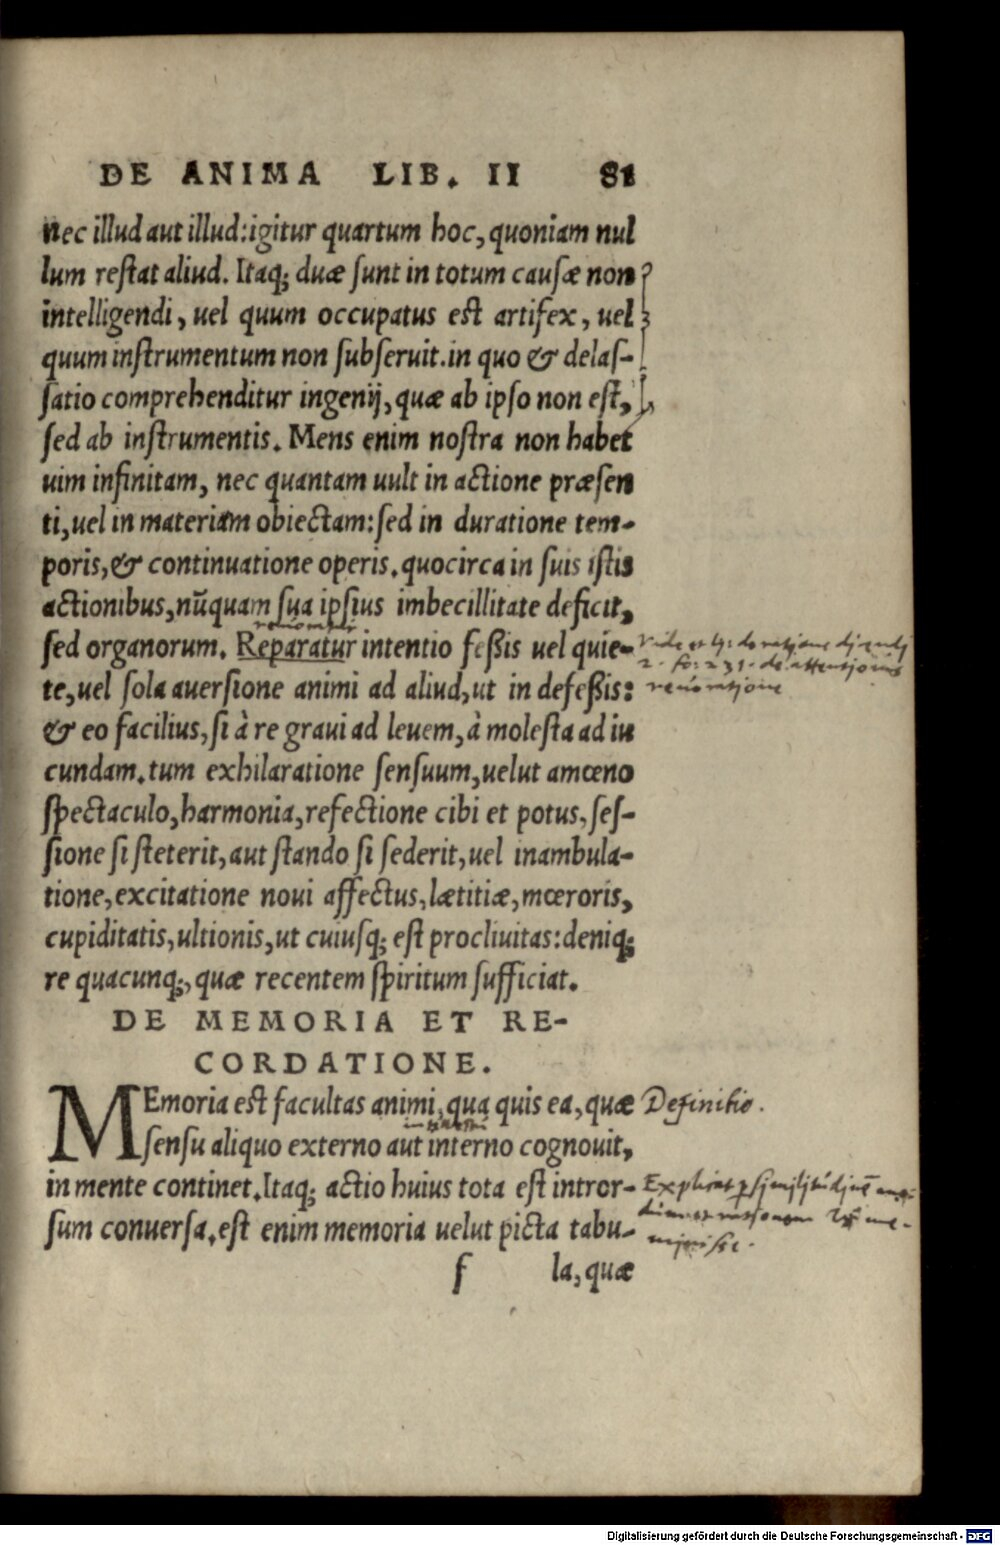 DE ANIMA LIB. II 81
nec illud aut illud: igitur quartum hoc, quoniam nul
lum restat aliud. Itaq; duæ sunt in totum causæ non
intelligendi, uel quum occupatus est artifex, uel
quum instrumentum non subseruit. in quo & delas-
satio comprehenditur ingenij, quæ ab ipso non est,
sed ab instrumentis. Mens enim nostra non habet
uim infinitam, nec quantam uult in actione præsen
ti, uel in materiam obiectam: sed in duratione tem-
poris, & continuatione operis. quocirca in suis istis
actionibus, nūquam sua ipsius imbecillitate deficit,
sed organorum. Reparatur intentio feßis uel quie-
te, uel sola auersione animi ad aliud, ut in defeßis:
& eo facilius, si à re graui ad leuem, à molesta ad iu
cundam. tum exhilaratione sensuum, uelut amœno
spectaculo, harmonia, refectione cibi et potus, ses-
sione si steterit, aut stando si sederit, uel inambula-
tione, excitatione noui affectus, lætitiæ, mœroris,
cupiditatis, ultionis, ut cuiusq; est procliuitas: deniq;
re quacunq;, quæ recentem spiritum sufficiat.
DE MEMORIA ET RE-
CORDATIONE.
MEmoria est facultas animi, qua quis ea, quæ
Definitio.
sensu aliquo externo aut interno cognouit,
in mente continet. Itaq; actio huius tota est intror-
sum conuersa. est enim memoria uelut picta tabu-
f la, quæ
Digitalisierung gefördert durch die Deutsche Forschungsgemeinschaft - DFG